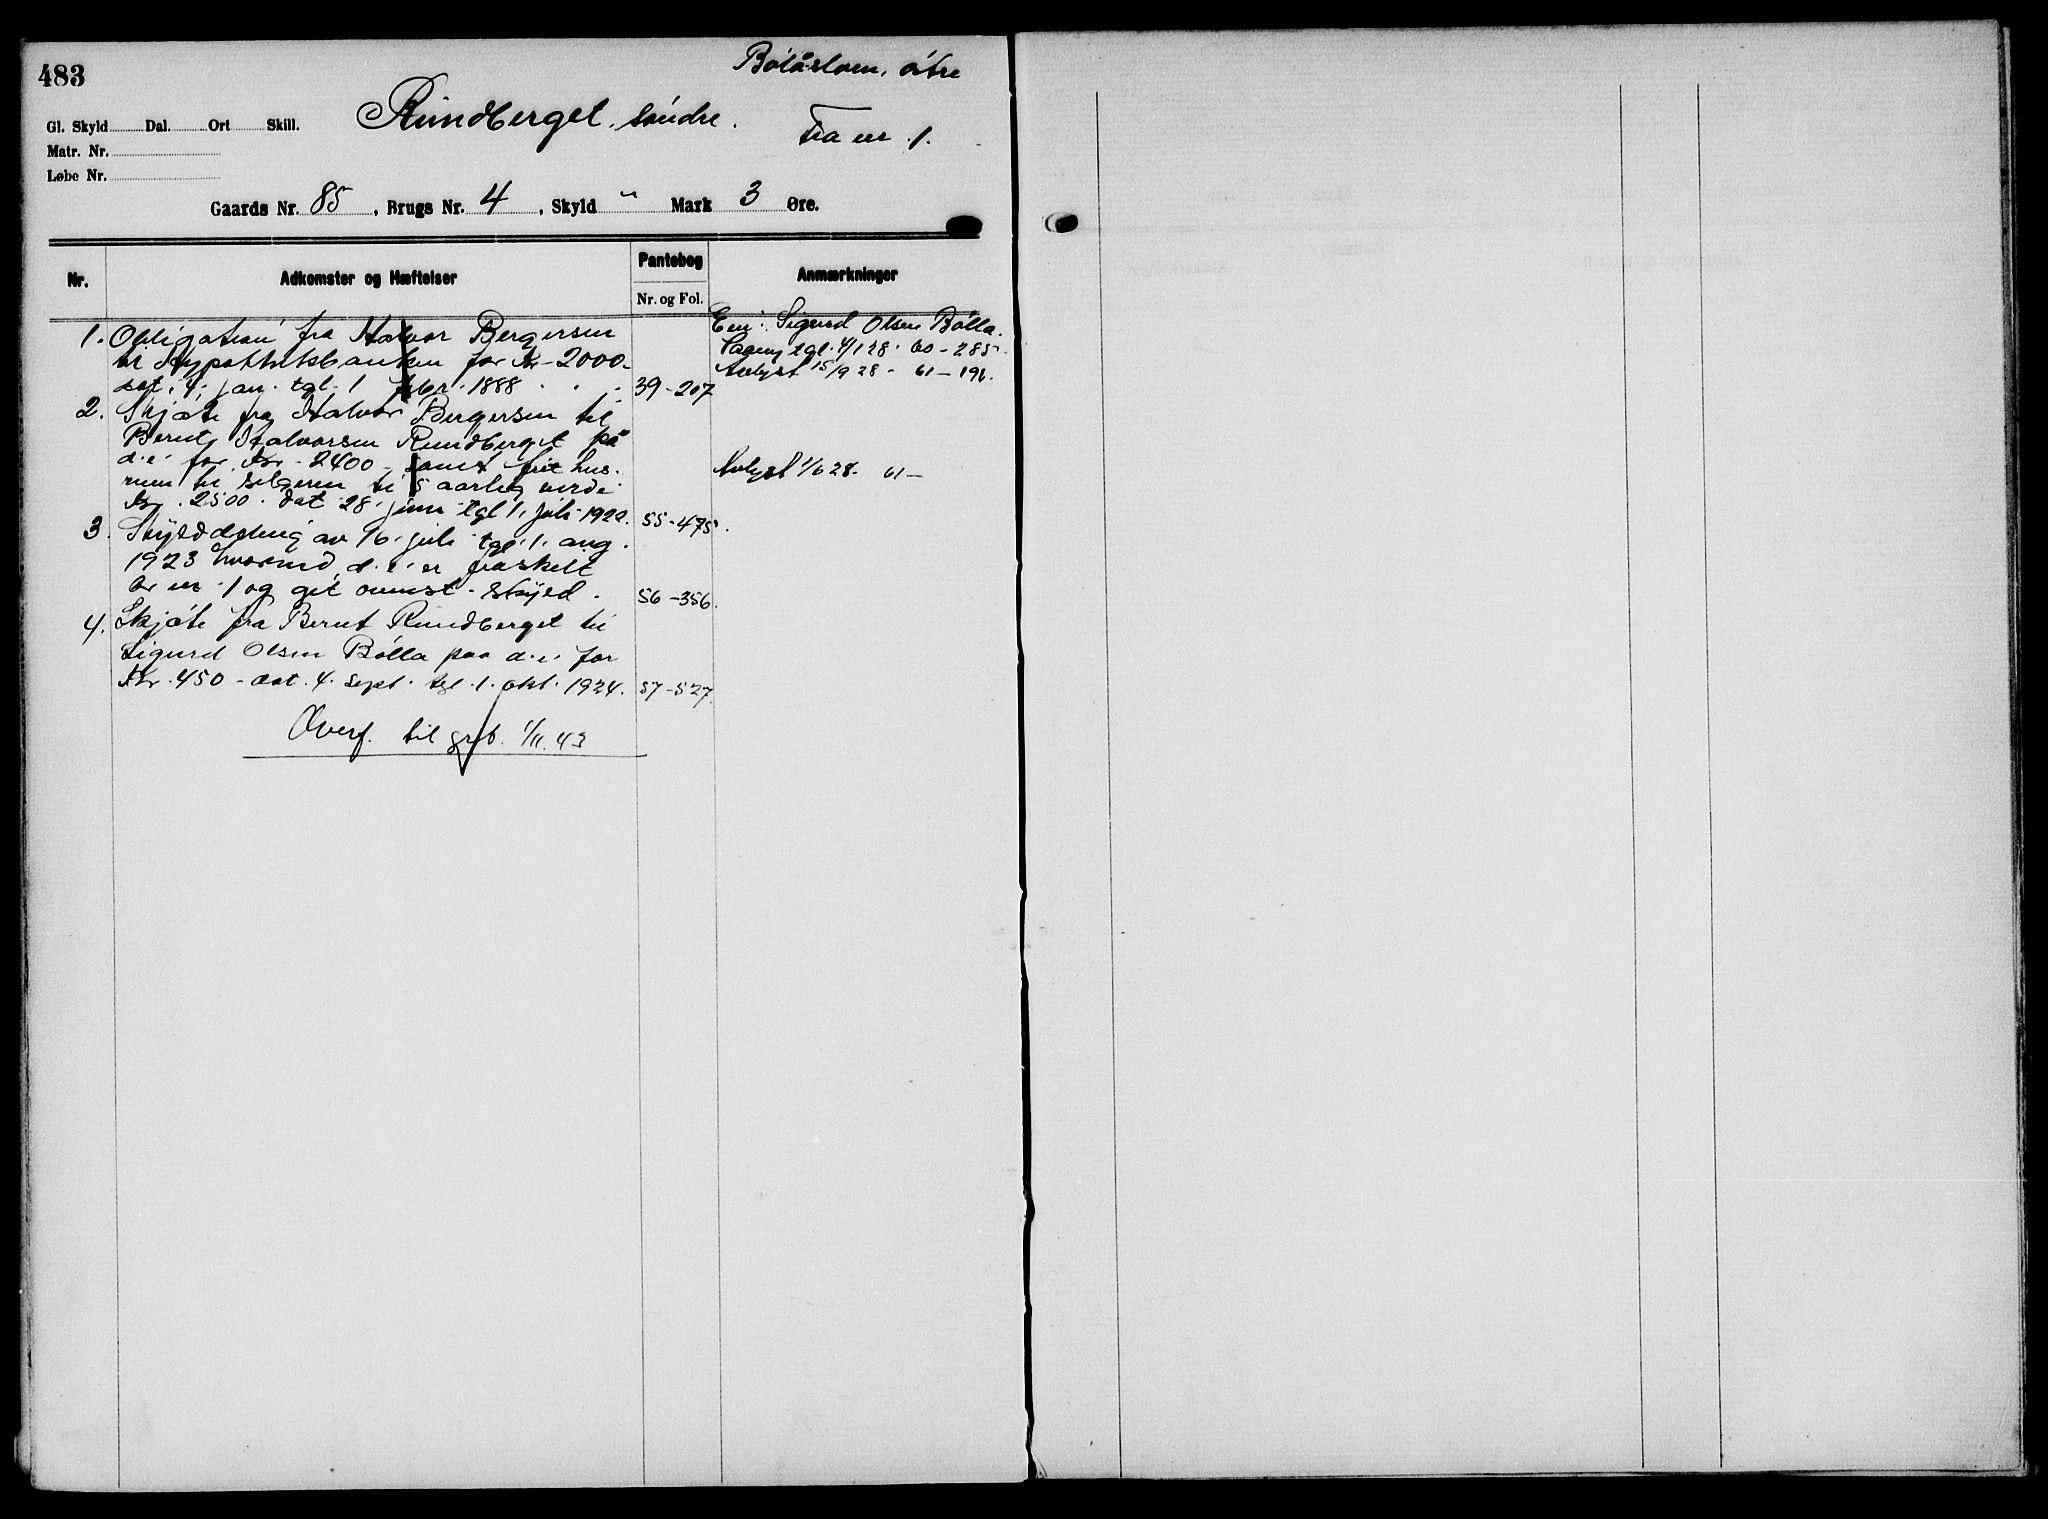 483
Bólåsloen, ótre
Rundberget, søndre.
Fra nr. 1.
Gl. Skyld Dal. Ort Skill.
Matr. Nr.
Løbe Nr.
Gaards Nr. 85, Brugs Nr. 4, Skyld " Mark 3 Øre.
Nr. Adkomster og Hæftelser Pantebog Anmærkninger
Nr. og Fol.
Eier: Sigurd Olsen Bólla.
1. Obligation fra Halvor Bergersen
til Hypothekbanken for Kr. 2000.-
dat. 4. jan. tgl. 1 febr. 1888 39-207
tgl. 4/1 28. 60-285
Avlyst 15/9 28 - 61-196.
2. Skjøte fra Halvor Bergersen til
Bernt Halvorsen Rundberget på
d.e. for Kr. 2400 - samt frit hus-
rum til selgeren til 5 aarlig verdi
Kr. 2500. dat 28. juni tgl 1. juli 1920. 55-475.
Avlyst 1/6 28. 61-
3. Skylddeling av 16. juli tgl. 1. aug.
1923 hvorved d.e. er fraskilt
br nr. 1 og git ovenst. skyld. 56-356.
4. Skjøte fra Bernt Rundberget til
Sigurd Olsen Bólla paa d.e. for
Kr. 450 - dat. 4. sept. tgl. 1. okt. 1924. 57-527.
Overf. til grb. 1/11. 43